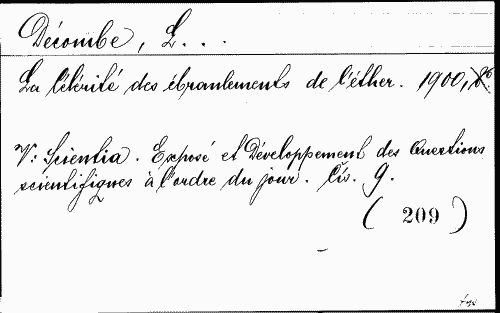 Décombe, L...
La célérité des ébranlements de l'éther. 1900, 8°.
V: Scientia. Exposé et Développement des Questions
scientifiques à l'ordre du jour. Čís. 9.
( 209 )